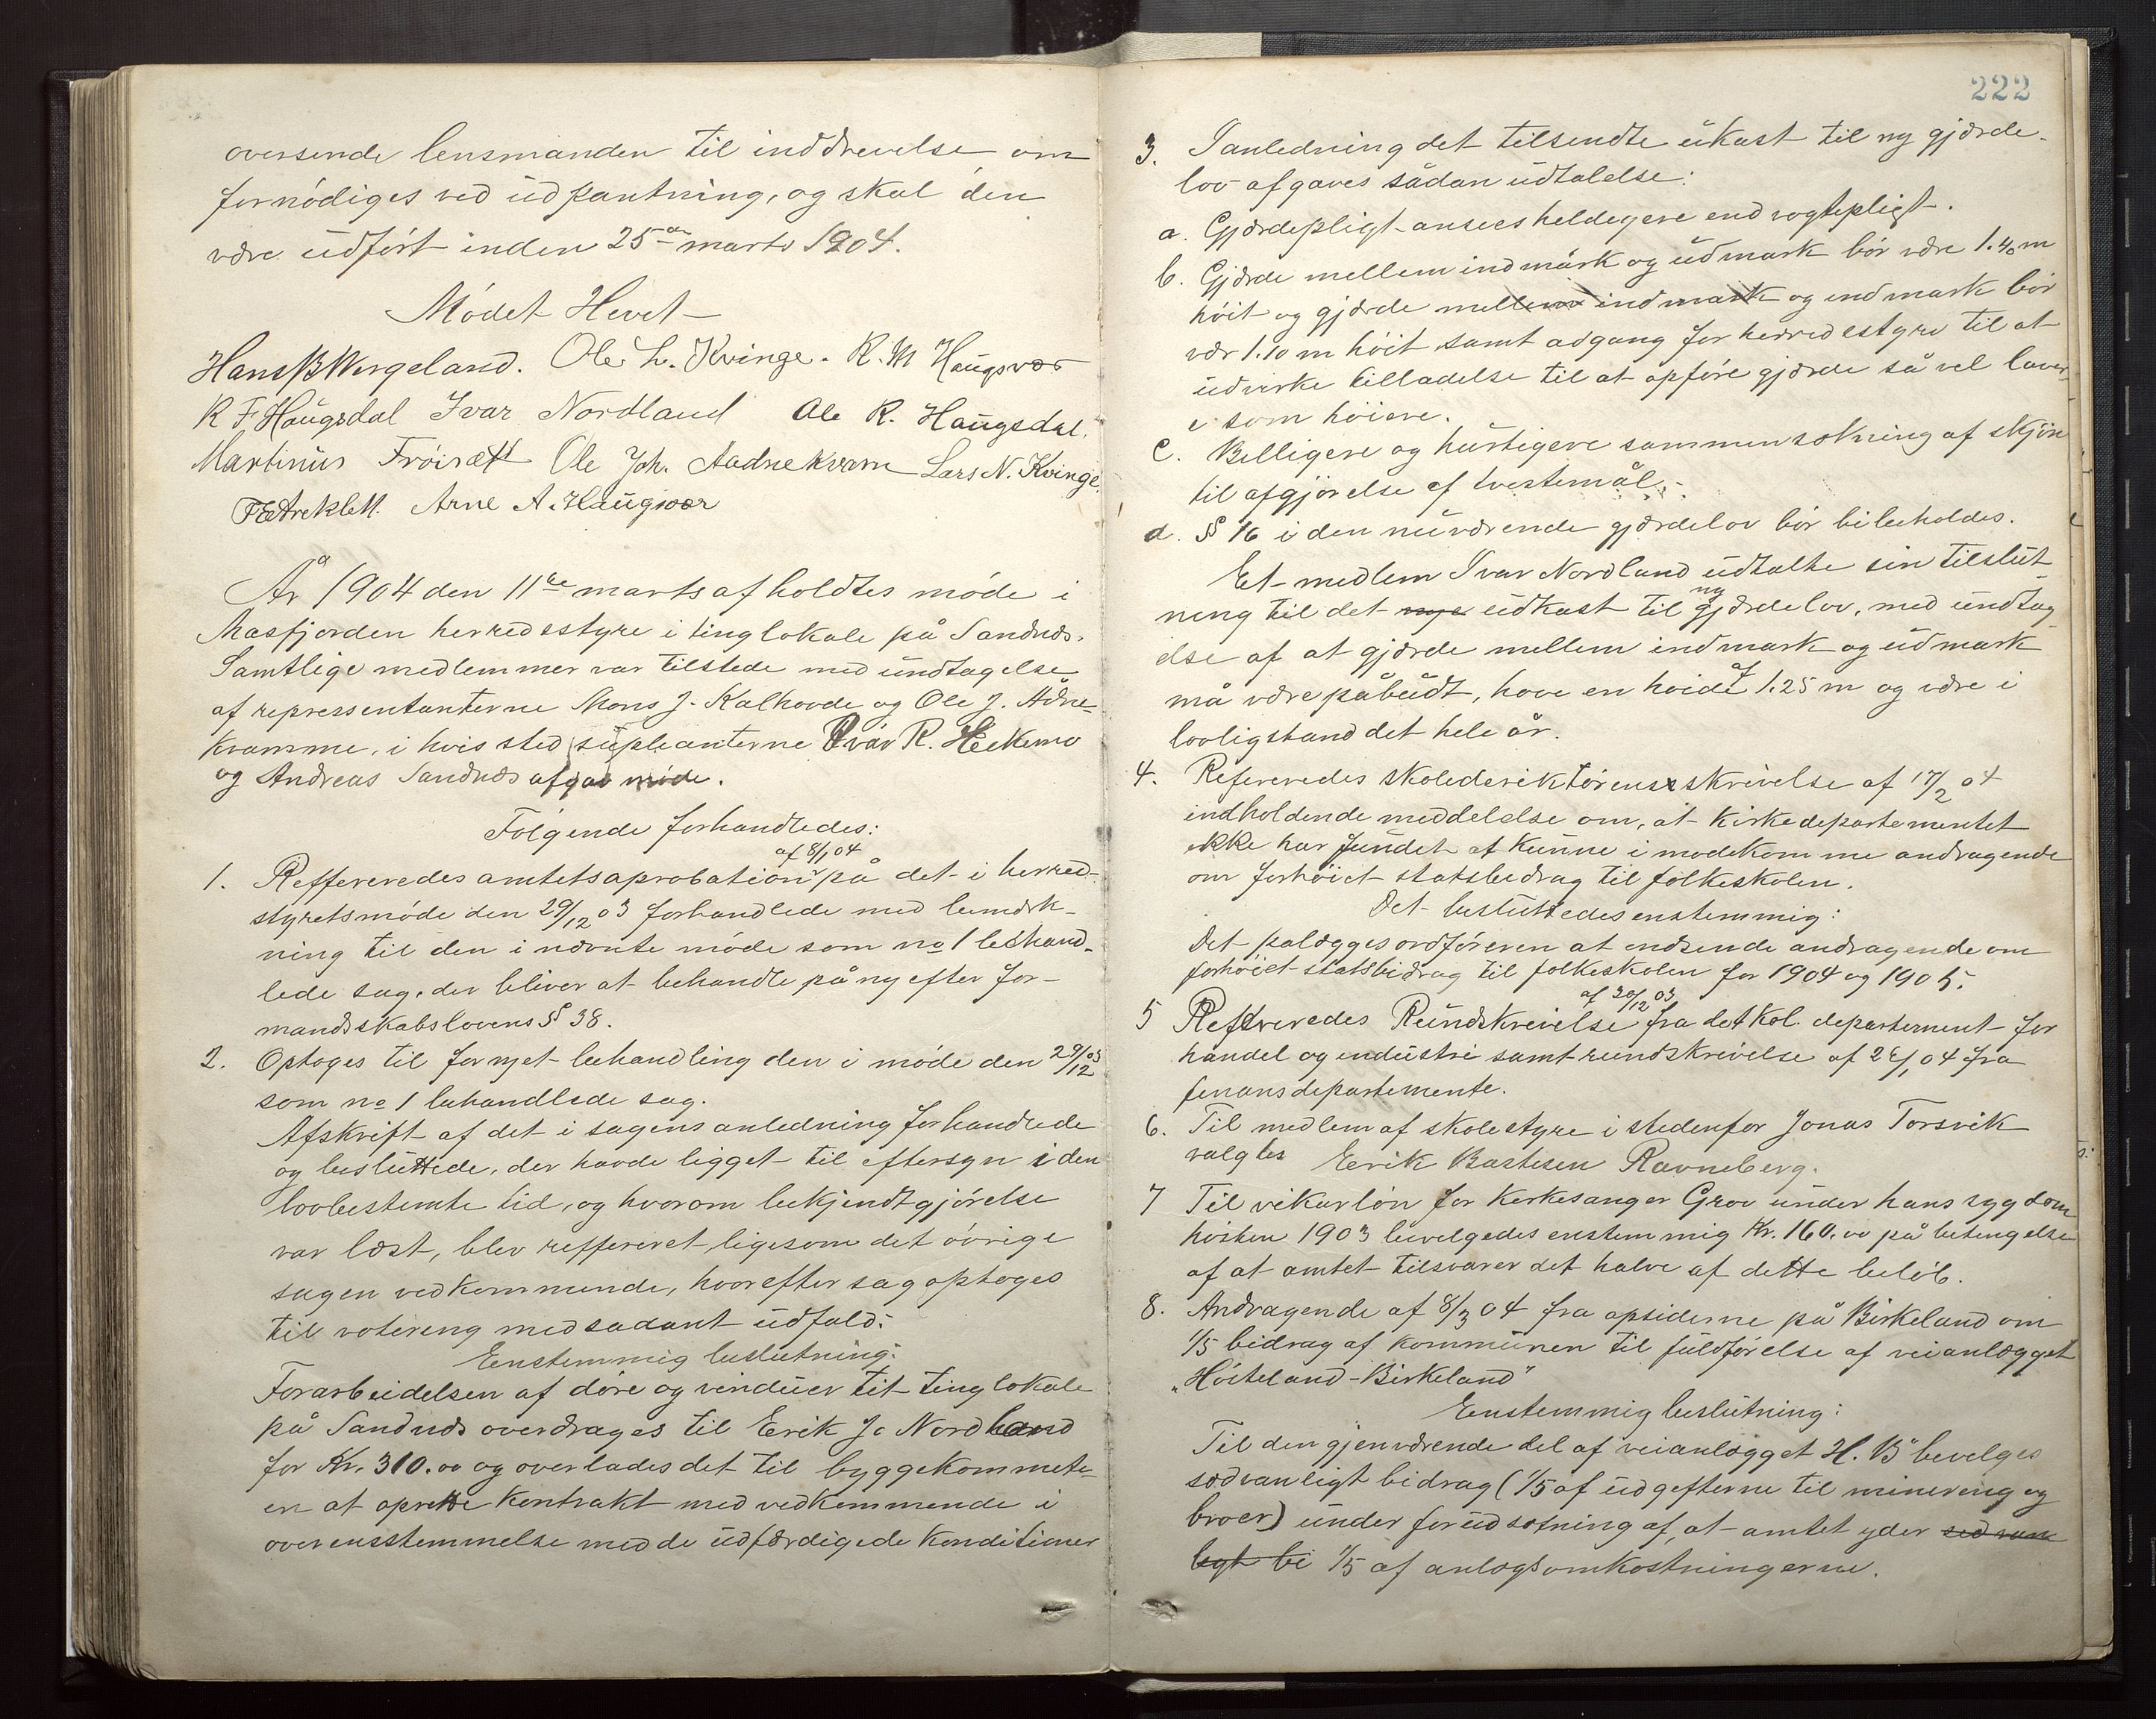 oversende lensmanden til inddrevelse om
fornödiges ved udpantning, og skal den
være udfört inden 25de marts 1904.
Mödet Hevet
Hans B Wergeland. Ole L. Kvinge. R. M Haugsvær
R F Haugsdal Ivar Nordland Ole R. Haugsdal.
Martinus Fröisæt Ole Joh. Aadnekvam Lars N. Kvinge.
Arne A. Haugsvær
År 1904 den 11te marts afholdtes möde i
Masfjorden herredsstyre i tinglokale på Sandnæs.
Samtlige medlemmer var tilstede med undtagelse
af repressentanterne Mons J. Kalhovde og Ole J. Ådne-
kvamme, i hvis sted supleanterne Ivar R. Hekemo
og Andreas Sandnæs afgav möde.
Fölgende forhandledes:
af 8/1 04
1. Reffereredes amtetsaprobation på det i herred-
styretsmöde den 29/12 03 forhandlede med bemærk-
ning til den i nævnte möde som no 1 behand-
lede sag, der bliver at behandle på ny efter for-
mandskabslovens § 38.
2. Optoges til fornyet behandling den i möde den 29/12 03
som no 1 behandlede sag.
Afskrift af det i sagens anledning forhandlede
og besluttede, der havde ligget til eftersyn i den
lovbestemte tid, og hvorom bekjendtgjörelse
var læst, blev reffereret ligesom det övrige
sagen vedkommende, hvorefter sag optoges
til votering med sadant udfald:
Eenstemmig beslutning:
Forarbeidelsen af döre og vinduer tit tinglokale
på Sandnæs overdrages til Erik J. Nordland
for Kr. 310.00 og overlades det til byggekommete-
en at oprette kontrakt med vedkommende i
overensstemmelse med de udfærdigede konditioner
222
3. I anledning det tilsendte ukast til ny gjærde-
lov afgaves sådan udtalelse:
a. Gjærdepligt ansees heldegere end vogtepligt.
b. Gjærde mellem indmark og udmark bör være 1.40 m
höit og gjærde mellem indmark og indmark bör
vær 1.10 m höit samt adgang for herredsstyre til at
udvirke tilladelse til at opföre gjærde så vel laver-
e som höiere.
c. Billigere og hurtigere sammensætning af skjön
til afgjörelse af tvestemål.
d. § 16 i den nuværende gjærdelov bör bibeholdes.
Et medlem Ivar Nordland udtalte sin tilslut-
ning til det nye udkast til ny gjærdelov, med undtag-
else af at gjærde mellem indmark og udmark
må være påbudt, have en hoide af 1.25 m og være i
lovligstand det hele år.
4. Refereredes skolederiktörens skrivelse af 17/2 04
indholdende meddelelse om, at kirkedepartementet
ikke har fundet at kunne imödekomme andragende
om forhöiet statsbedrag til folkeskolen.
Det besluttedes enstemmig:
Det palægges ordföreren at indsende andragende om
forhöiet statsbidrag til folkeskolen for 1904 og 1905.
af 30/12 03
5 Refereredes Rundskrivelse fra det kol. departement for
handel og industri samt rundskrivelse af 28/1 04 fra
finansdepartemente.
6. Til medlem af skolestyre i stedenfor Jonas Torsvik
valgtes Eerik Bastesen Ravneberg.
7 Til vikarlön for kerkesanger Grov under hans sygdom
hösten 1903 bevelgedes enstemmig Kr. 160.00 på betengelse
af at amtet tilsvarer det halve af dette belöb.
8. Andragende af 8/3 04 fra opsiderne på Birkeland om
1/5 bidrag af kommunen til fuldförelse af veianlægget
"Hösteland-Birkeland"
Eenstemmig beslutning:
Til den gjenværende del af veianlægget H. B" bevelges
sædvanligt bidrag (1/5 af udgefterne til minering og
broer) under forudsætning af, at amtet yder sædvan
ligt bi 1/5 af anlægsomkostningerne.